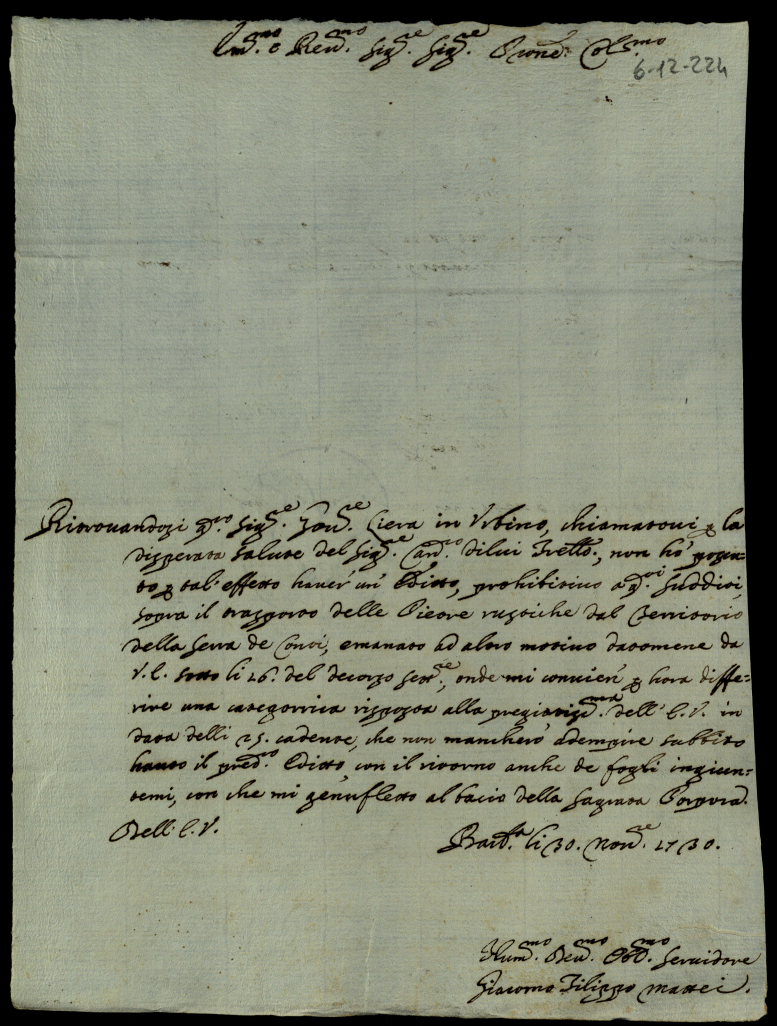 Em.mo e Reu.mo Sig.re Sig.re Prone. Col.mo
6-12-224
Ritrouandosi q.sto Sig.re Gou.re Ciera in Urbino, chiamatoui p la
disperata salute del Sig.re Can.co di lui Fratello, non ho' potu-
to p tal' effetto hauer' un' Editto, prohibitiuo a q.sti Sudditi,
sopra il trasporto delle Pietre rustiche dal Territorio
della Serra de Conti, emanato ad altro motiuo datomene da
V. E. sotto li 16. del decorso Sett.re, onde mi conuien' p hora diffe-
rire una categorrica risposta alla pregiatiss.ma dell' E. V. in
data delli 25. cadente, che non mancherò adempire subbito
hauto il pred.to Editto, con il ritorno anche de fogli ingiun-
temi, con che mi genufletto al bacio della Sagrata Porpora.
Dell' E. V.
Barb.ra li 30. Nou.re 1730.
Hum.mo Deu.mo Obb.mo Seruidore
Giacomo Filippo Mattei.